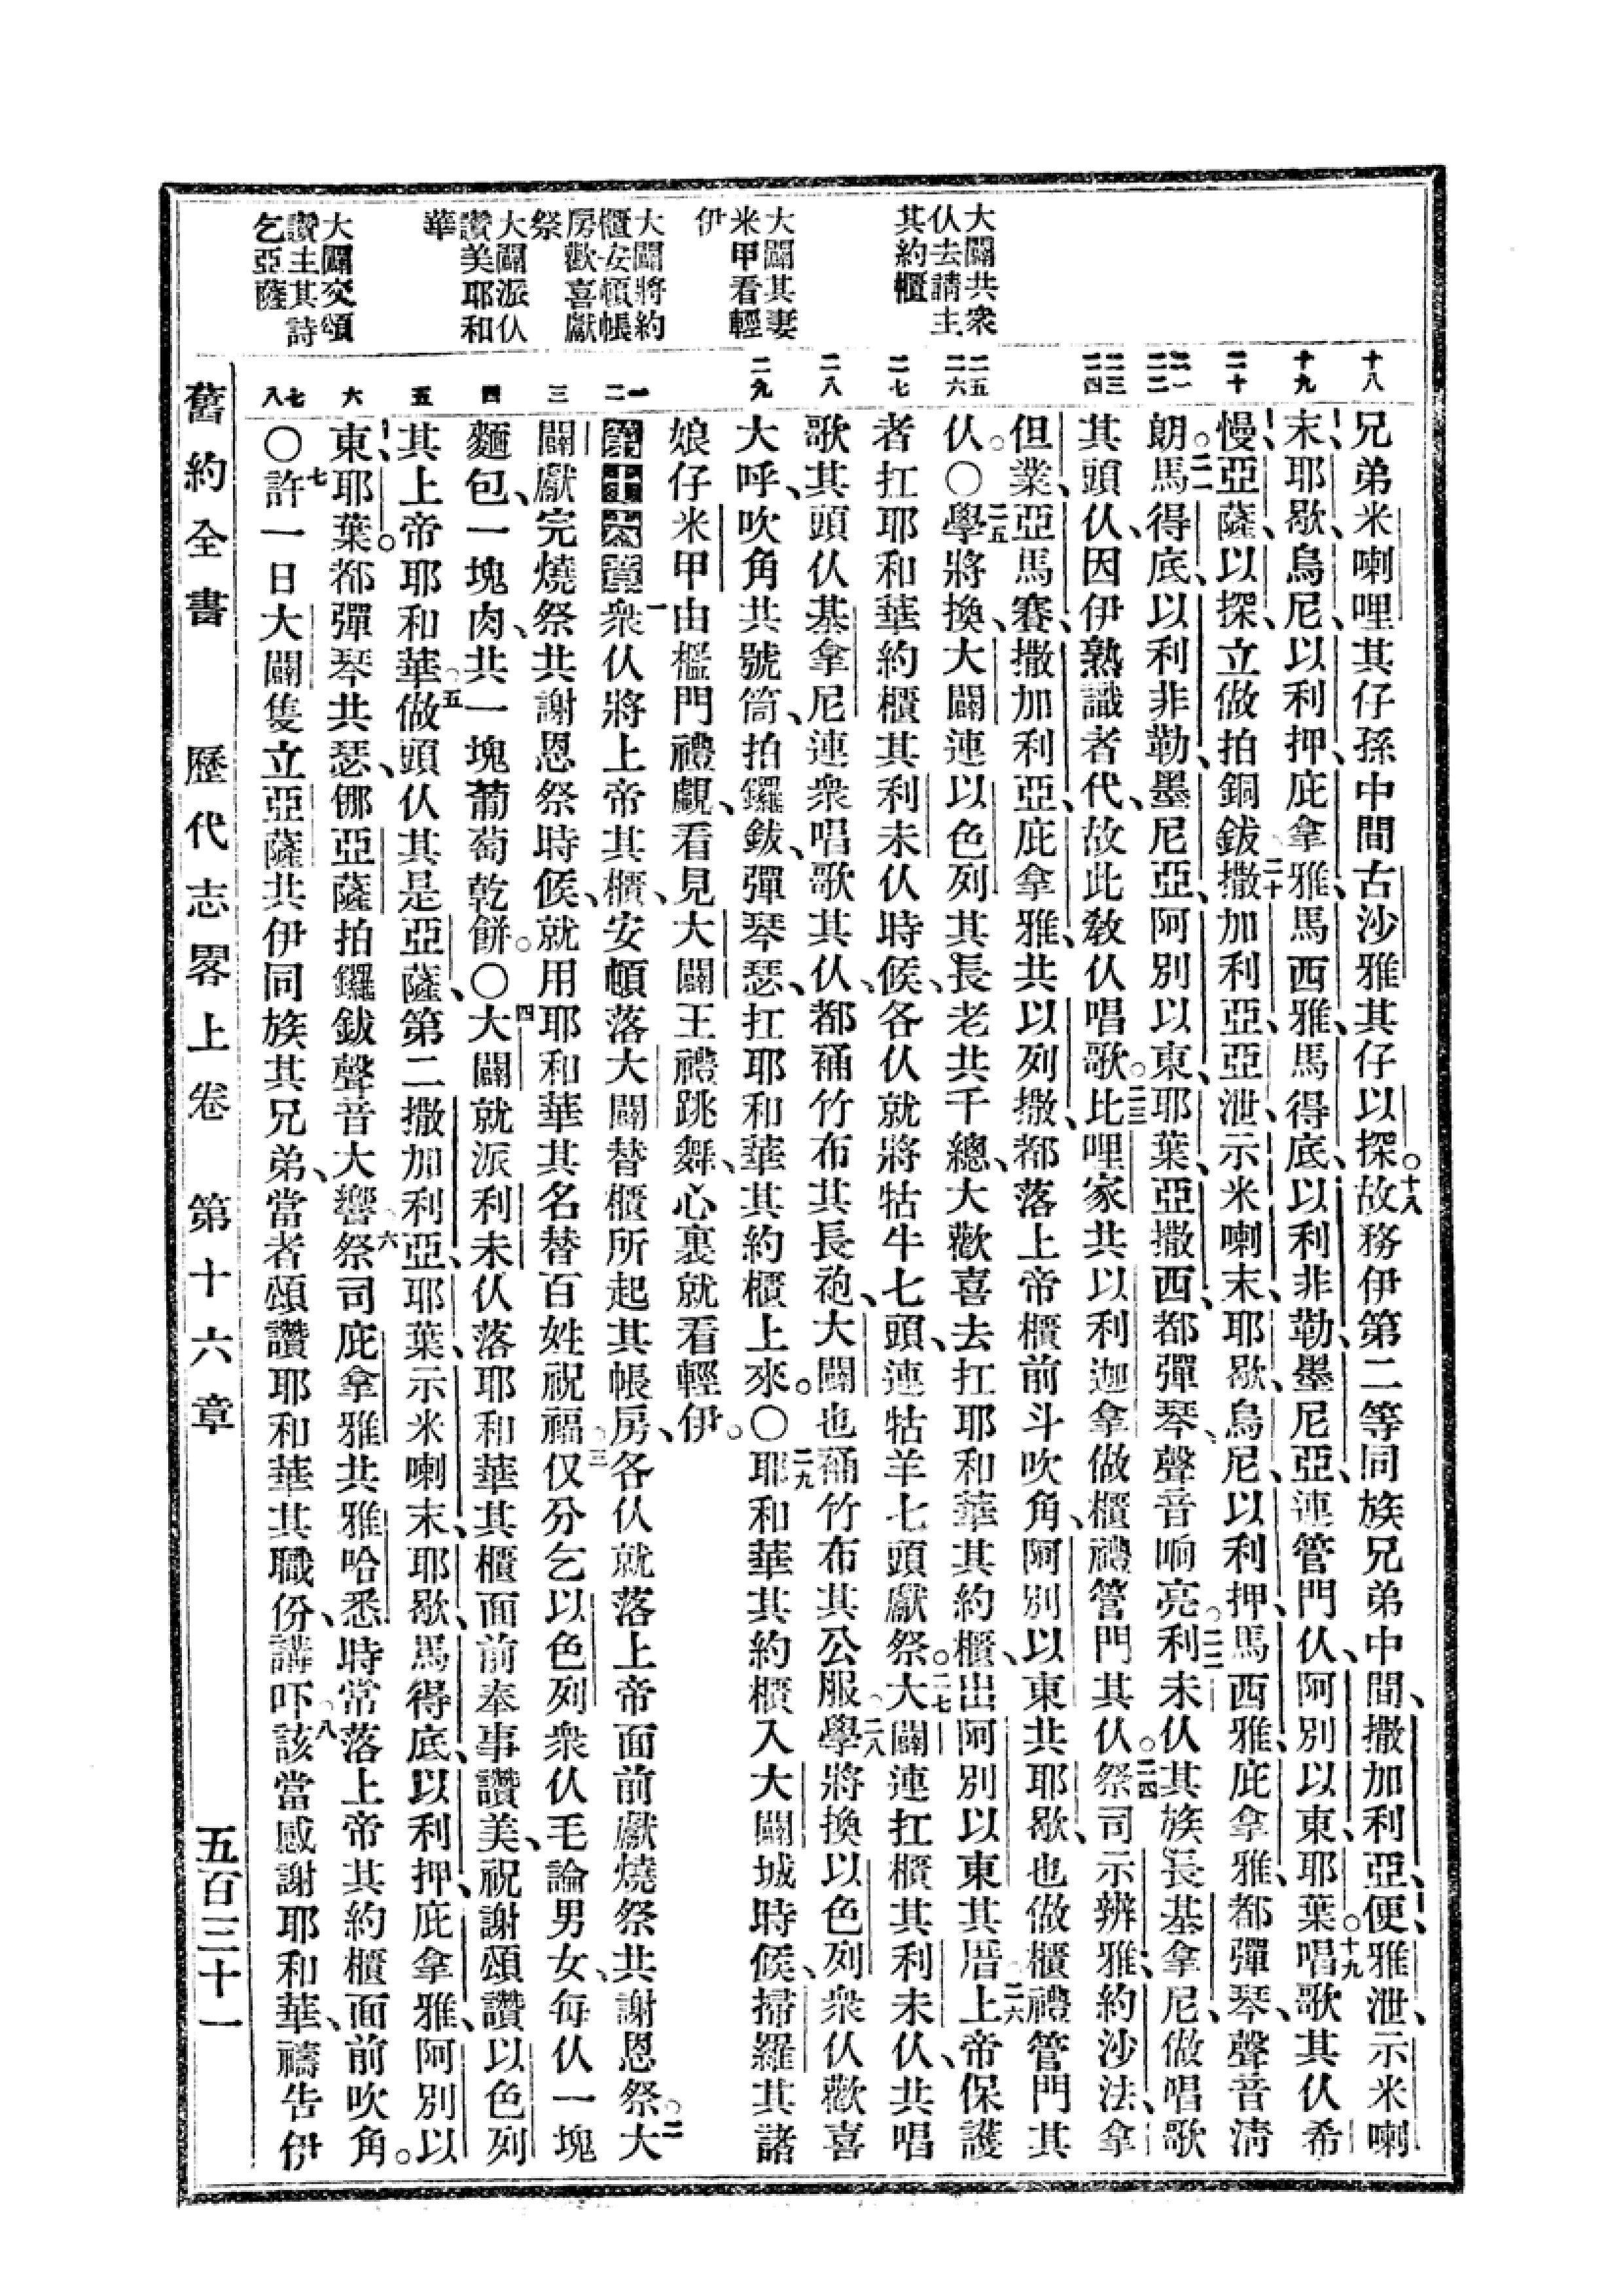 大闢共衆
仫去請主
其約櫃
大闢其妻
米甲看輕
伊
大闢將約
櫃安頓帳
房歡喜獻
祭
大闢派仫
讚美耶和
華
大闢交頌
讚主其詩
乞亞薩
十八
十九
二十
二一
二二
二三
二四
二五
二六
二七
二八
二九
一
二
三
四
五
六
七
八
兄弟米喇哩其仔孫中間古沙雅其仔以探。十八故務伊第二等同族兄弟中間、撒加利亞、便、雅泄、示米喇
末、耶歇、烏尼、以利押、庇拿雅、馬西雅、馬得底、以利非勒、墨尼亞、連管門仫、阿別以東、耶葉。十九唱歌其仫希
慢、亞薩、以探、立做拍銅鈸、二十撒加利亞、亞泄、示米喇末、耶歇、烏尼、以利押、馬西雅、庇拿雅、都彈琴、聲音清
朗。二一馬得底、以利非勒、墨尼亞、阿別以東、耶葉、亞撒西、都彈琴、聲音响亮。二二利未仫其族長基拿尼、做唱歌
其頭仫、因伊熟識者代、故此敎仫唱歌。二三比哩家共以利迦拿做櫃禮管門其仫。二四祭司示辨雅、約沙法、拿
但業、亞馬賽、撒加利亞、庇拿雅、共以列撒、都落上帝櫃前斗吹角、阿別以東共耶歇、也做櫃禮管門其
仫。〇二五學將換、大闢連以色列其長老共千總、大歡喜去扛耶和華其約櫃、出阿別以東其厝、二六上帝保護
者扛耶和華約櫃其利未仫時候、各仫就將牯牛七頭、連牯羊七頭獻祭。二七大闢連扛櫃其利未仫、共唱
歌其頭仫基拿尼連衆唱歌其仫、都䘄竹布其長袍、大闢也䘄竹布其公服、二八學將換以色列衆仫歡喜
大呼、吹角共號筒、拍鑼鈸、彈琴瑟、扛耶和華其約櫃上來。〇二九耶和華其約櫃入大闢城時候、掃羅其諸
娘仔米甲由槛門禮覷、看見大闢王禮跳舞、心裏就看輕伊。
第十六章一衆仫將上帝其櫃、安頓落大闢替櫃所起其帳房、各仫就落上帝面前獻燒祭共謝恩祭。二大
闢獻完燒祭共謝恩祭時候、就用耶和華其名替百姓祝福、三仅分乞以色列衆仫毛論男女、每仫一塊
麵包、一塊肉、共一塊葡萄乾餅。〇四大闢就派利未仫落耶和華其櫃面前奉事讚美、祝謝頌讚以色列
其上帝耶和華、五做頭仫其是亞薩、第二撒加利亞、耶葉、示米喇末、耶歇、馬得底、以利押、庇拿雅、阿別以
東、耶葉。都彈琴共瑟、那亞薩拍鑼鈸聲音大響、六祭司庇拿雅共雅哈悉時常落上帝其約櫃面前吹角。
〇七許一日大闢隻立亞薩共伊同族其兄弟、當者頌讚耶和華其職份、講吓、八該當感謝耶和華、禱告伊
舊約全書 歷代志畧上卷 第十六章 五百三十一